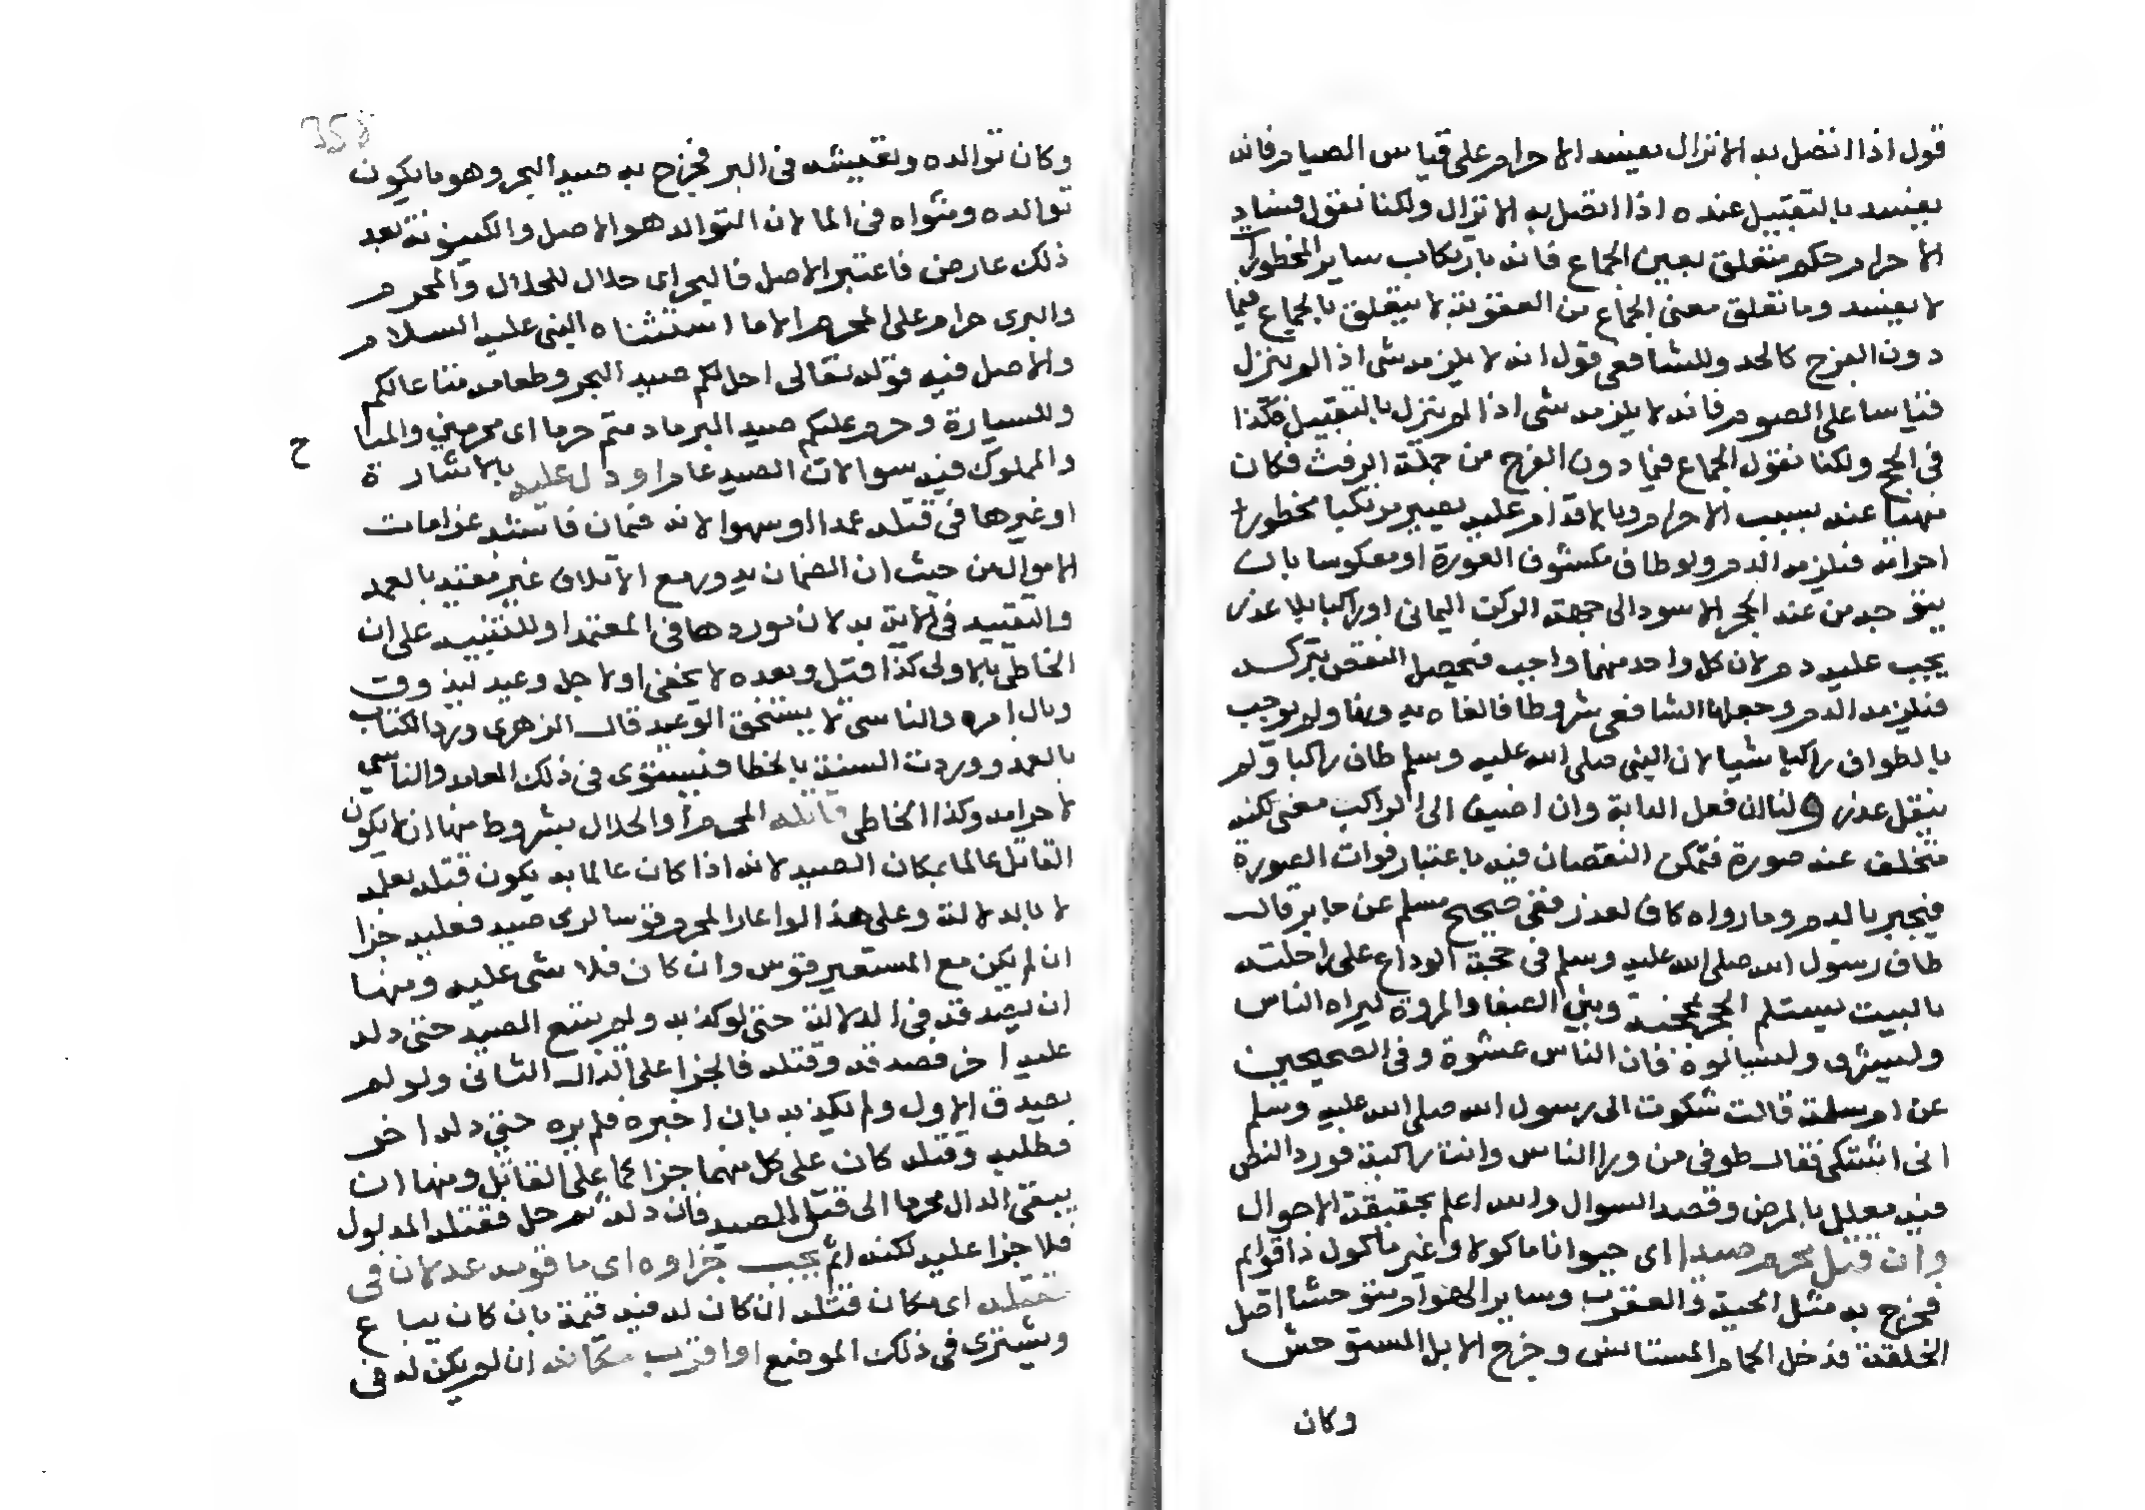 قول اذا اتصل به الانزال يفسد الاحرام على قياس الصيام فانه
يفسد بالتقبيل عنده اذا اتصل به الانزال ولكنا نقول فساد
الاحرام حكم متعلق بعين الجماع فانه بارتكاب ساير المحظورات
لا يفسد وما تعلق بعين الجماع من العقوبة لا يتعلق بالجماع فيما
دون الفرج كالحد وللشافعي قول انه لا يلزمه شي اذا لم ينزل
قياسا على الصوم فانه لا يلزمه شي اذا لم ينزل بالتقبيل فكذا
في الحج ولكنا نقول الجماع فيما دون الفرج من جملة الرفث فكان
منهيا عنه بسبب الاحرام وبالاقدام عليه يصير مرتكبا محظور
احرامه فيلزمه الدم ولو طاف مكشوف العورة او معكوسا بان
يتوجه من عند الحجر الاسود الى جهة الركن اليماني او راكبا بلا عذر
يجب عليه دم لان كل واحد منهما واجب فيحصل النقص بتركه
فيلزمه الدم وجعلها الشافعي شروطا فالغاه بدونها ولم يوجب
بالطواف راكبا شيا لان النبي صلى الله عليه وسلم طاف راكبا ولم
ينقل عذر ولنا ان فعل الدابة وان اضيف الى الراكب معنى لكنه
متخلف عنه صورة فتمكن النقصان فيه باعتبار فوات الصورة
فيجبر بالدم وما رواه كان لعذر ففي صحيح مسلم عن جابر قال
طاف رسول الله صلى الله عليه وسلم في حجة الوداع على راحلته
بالبيت يستلم الحجر بمحجنه وبين الصفا والمروة ليراه الناس
وليشرف وليسالوه فان الناس غشوه وفي الصحيحين
عن ام سلمة قالت شكوت الى رسول الله صلى الله عليه وسلم
اني اشتكي فقال طوفي من ورا الناس وانت راكبة فورد النص
فيه معلل بالمرض وقصد السوال والله اعلم بحقيقة الاحوال
وان قتل محرم صيدا اي حيوانا ماكولا او غير ماكول ذا قوايم
فخرج به مثل الحية والعقرب وساير الهوام متوحشا اصل
الخلقة فدخل الحمام المستانس وخرج الابل المستوحش
وكان
وكان توالده وتعيشه في البر فخرج به صيد البحر وهو ما يكون
توالده ومثواه في الما لان التوالد هو الاصل والكينونة بعد
ذلك عارض فاعتبر الاصل فالبحراي حلال للحلال والمحرم
والبري حرام على المحرم الا ما استثناه النبي عليه السلام
والاصل فيه قوله تعالى احل لكم صيد البحر وطعامه متاعا لكم
وللسيارة وحرم عليكم صيد البر ما دمتم حرما اي محرمين والمبا
ح
والمملوك فيه سوا لان الصيد عام او دل عليه بالاشارة
او غيرها في قتله عمدا او سهوا لانه ضمان فاشبه غرامات
الاموال من حيث ان الضمان يدور مع الاتلاف غير مقيد بالعمد
والتقييد في الاية به لان موردها في المعتمد او للتنبيه على ان
الخاطي بالاولى كذا قيل وبعده لا يخفى او لاجل وعيد ليذوق
وبال امره والناسي لا يستحق الوعيد قال الزهري ورد الكتاب
بالعمد ووردت السنة بالخطا فيستوي في ذلك العامد والناسي
لاحرامه وكذا الخاطي قاتله المحرم او الحلال بشروط منها ان لا يكون
القاتل عالما بمكان الصيد لانه اذا كان عالما به يكون قتله بعلمه
لا بالدلالة وعلى هذا لو اعار المحرم قوسا لرمي صيد فعليه جزا
ان لم يكن مع المستعير قوس وان كان فلا شي عليه ومنها
ان يصدقه في الدلالة حتى لو كذبه ولم يتبع الصيد حتى دله
عليه اخر فصدقه وقتله فالجزا على الدال الثاني ولو لم
يصدق الاول ولم يكذبه بان اخبره فلم يره حتى دله اخر
فطلبه وقتله كان على كل منهما جزا كما على القاتل ومنها ان
يبقى الدال محرما الى قتل الصيد فان دله ثم حل فقتله المدلول
فلا جزا عليه لكنه اثم يجب جزاوه اي ما قومه عدلان في
مقتله اي مكان قتله ان كان له فيه قيمة بان كان يباع
ويشترى في ذلك الموضع او اقرب مكانه ان لم يكن له في